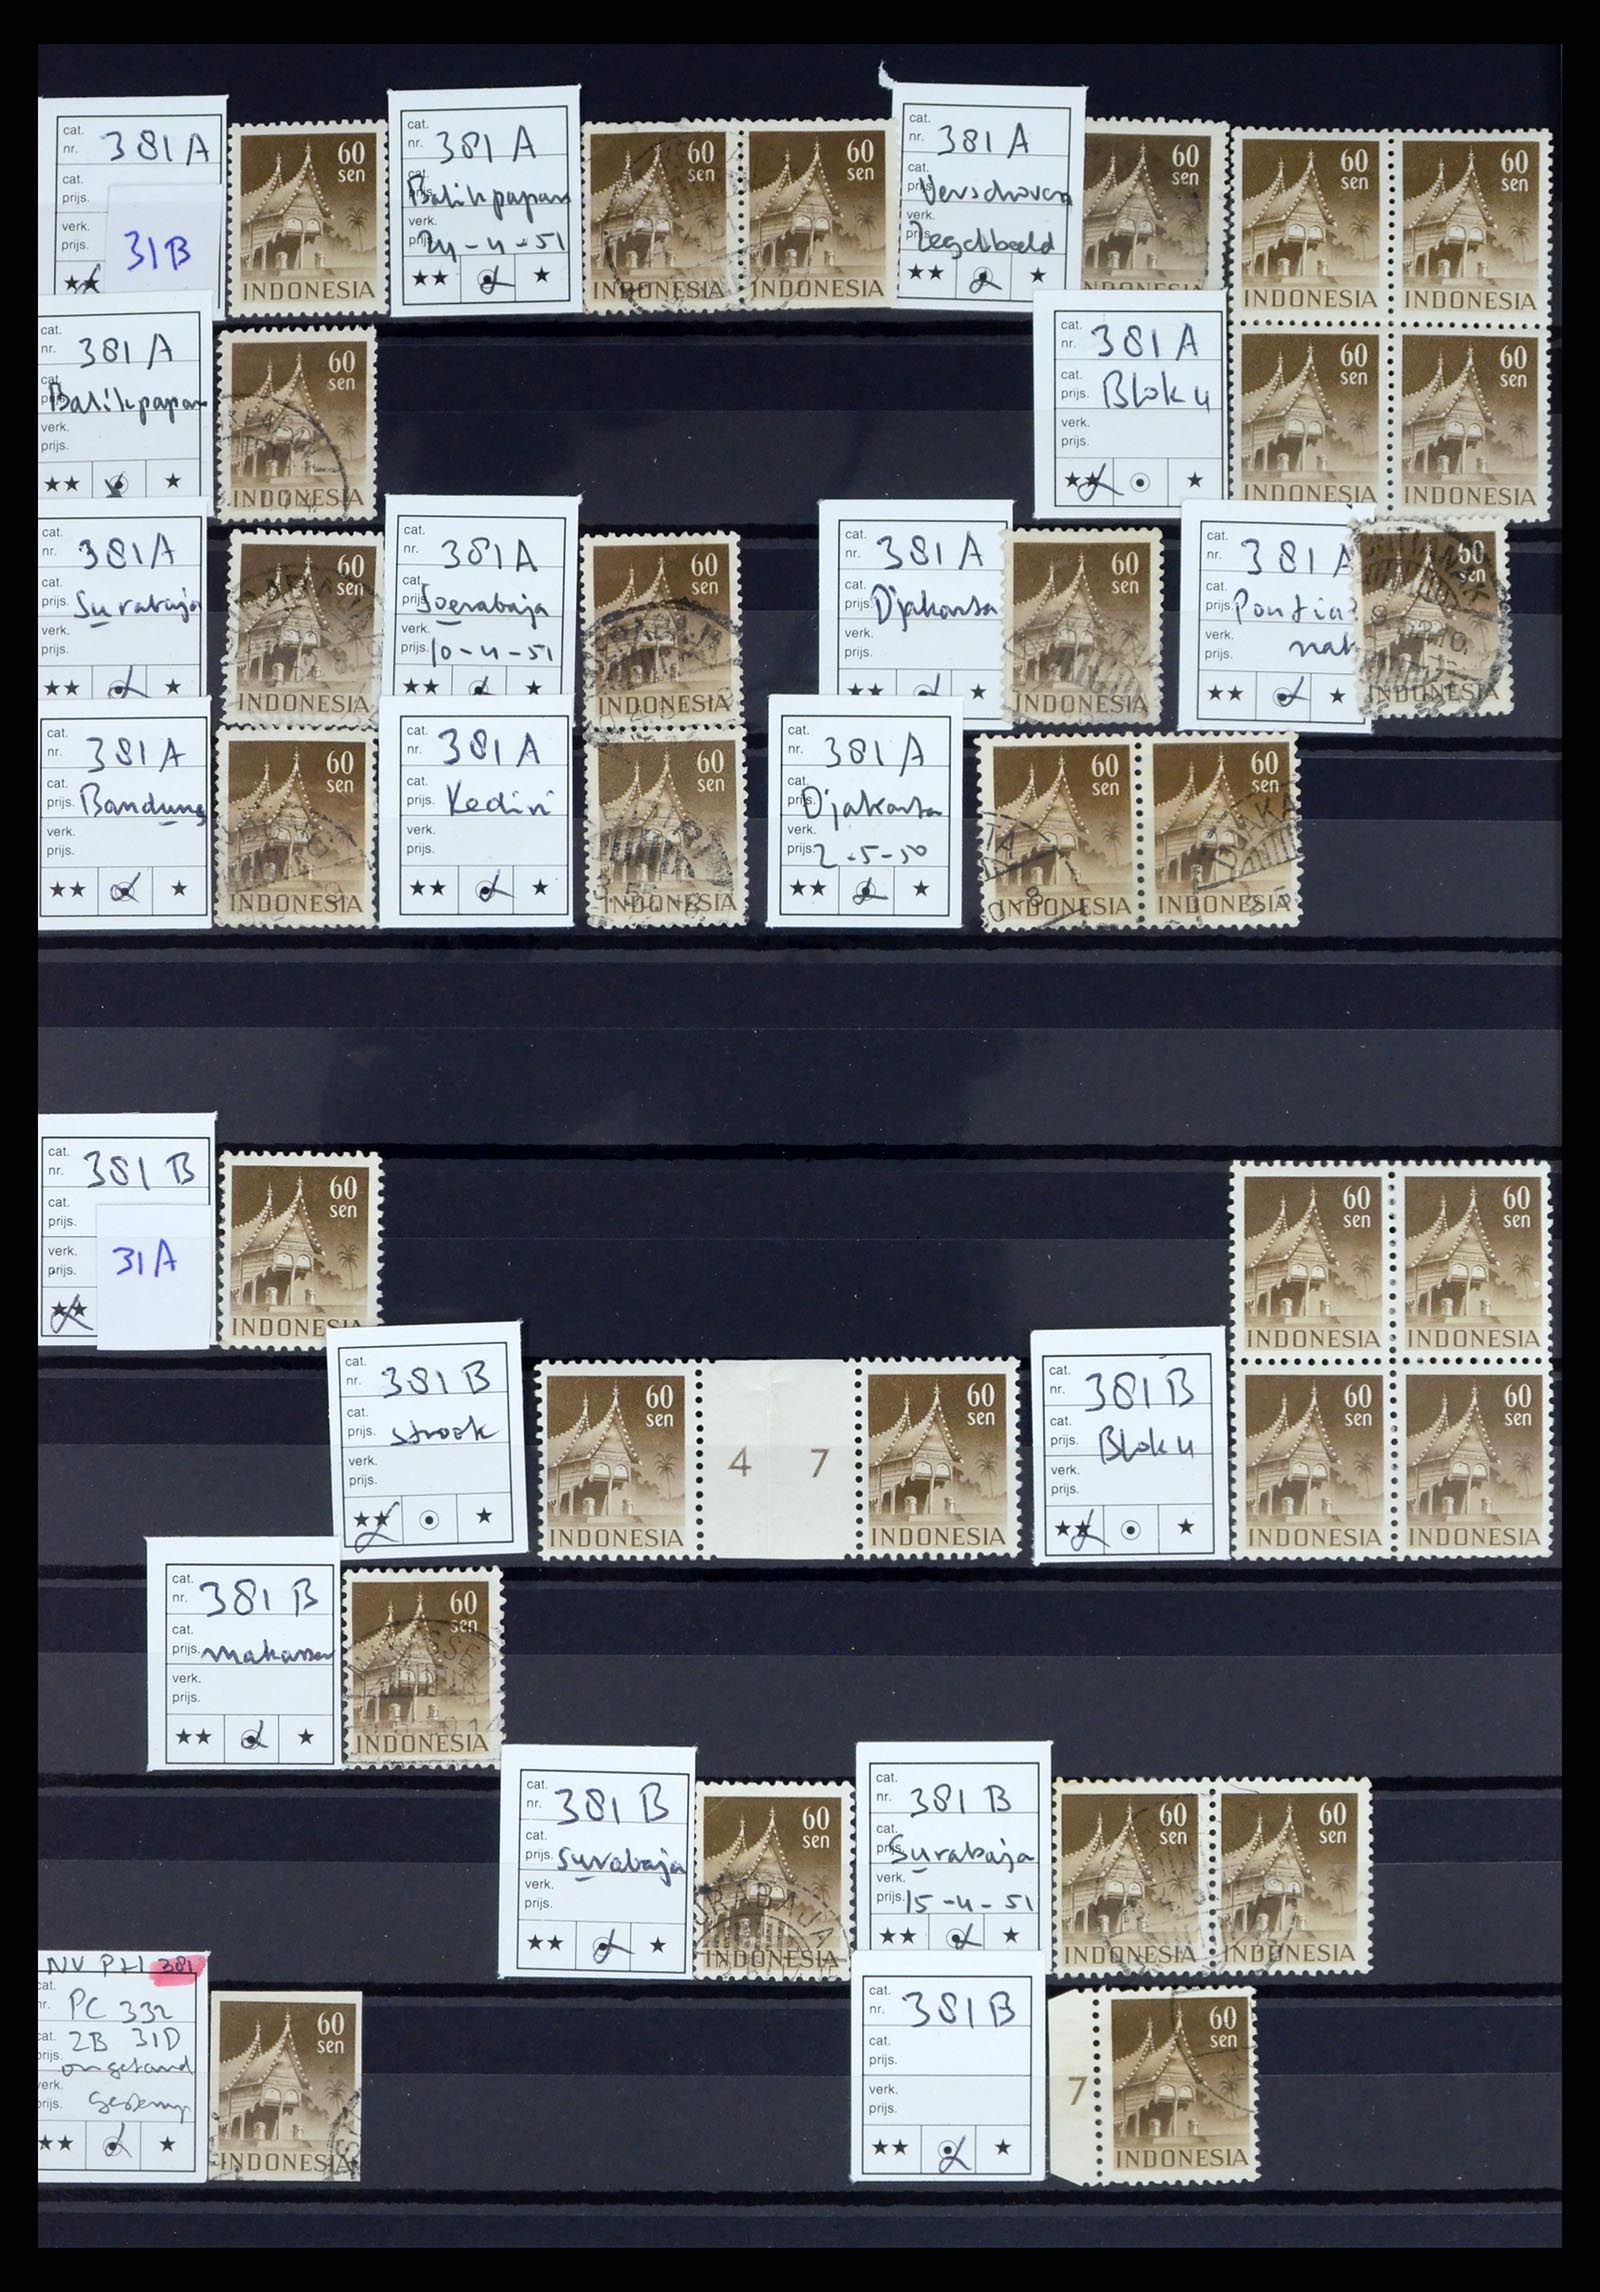 cat.
nr. 381 A
cat.
prijs.
verk.
prijs.
31B
★★
60
sen
INDONESIA
cat.
nr. 381 A
cat.
prijs. Balikpapan
verk.
prijs. 24-4-51
★★ ★
60
sen
INDONESIA
60
sen
INDONESIA
cat.
nr. 381 A
cat.
prijs. Verschoven
verk.
prijs. Zegelbeeld
★★ ★
60
sen
INDONESIA
60
sen
INDONESIA
60
sen
INDONESIA
60
sen
INDONESIA
60
sen
INDONESIA
cat.
nr. 381 A
cat.
prijs. Balikpapan
verk.
prijs.
★★ ★
60
sen
INDONESIA
cat.
nr. 381 A
cat.
prijs. Blok 4
verk.
prijs.
★★ ★
cat.
nr. 381 A
cat.
prijs. Surabaja
verk.
prijs.
★★ ★
60
sen
INDONESIA
cat.
nr. 381 A
cat.
prijs. Soerabaja
verk.
prijs. 10-4-51
★★ ★
60
sen
INDONESIA
cat.
nr. 381 A
cat.
prijs. Djakarta
verk.
prijs.
★★ ★
60
sen
INDONESIA
cat.
nr. 381 A
cat.
prijs. Pontia
verk.
prijs. nak
★★ ★
60
sen
INDONESIA
cat.
nr. 381 A
cat.
prijs. Bandung
verk.
prijs.
★★ ★
60
sen
INDONESIA
cat.
nr. 381 A
cat.
prijs. Kediri
verk.
prijs.
★★ ★
60
sen
INDONESIA
cat.
nr. 381 A
cat.
prijs. Djakarta
verk.
prijs. 2-5-50
★★ ★
60
sen
INDONESIA
60
sen
DJAKA
INDONESIA
cat.
nr. 381 B
cat.
prijs.
verk.
prijs.
31A
★★
60
sen
INDONESIA
60
sen
INDONESIA
60
sen
INDONESIA
60
sen
INDONESIA
60
sen
INDONESIA
cat.
nr. 381 B
cat.
prijs. strook
verk.
prijs.
★★ ★
60
sen
INDONESIA
4 7
60
sen
INDONESIA
cat.
nr. 381 B
cat.
prijs. Blok 4
verk.
prijs.
★★ ★
cat.
nr. 381 B
cat.
prijs. Makassar
verk.
prijs.
★★ ★
60
sen
INDONESIA
cat.
nr. 381 B
cat.
prijs. Surabaja
verk.
prijs.
★★ ★
60
sen
RABAJA
INDONESIA
cat.
nr. 381 B
cat.
prijs. Surabaja
verk.
prijs. 15-4-51
★★ ★
60
sen
INDONESIA
60
sen
INDONESIA
NVPH 381
cat.
nr. PC 332
cat. 2B 31D
prijs. ongetand
verk.
prijs. gestemp
★★ ★
60
sen
INDONESIA
cat.
nr. 381 B
cat.
prijs.
verk.
prijs.
★★ ★
7
60
sen
INDONESIA